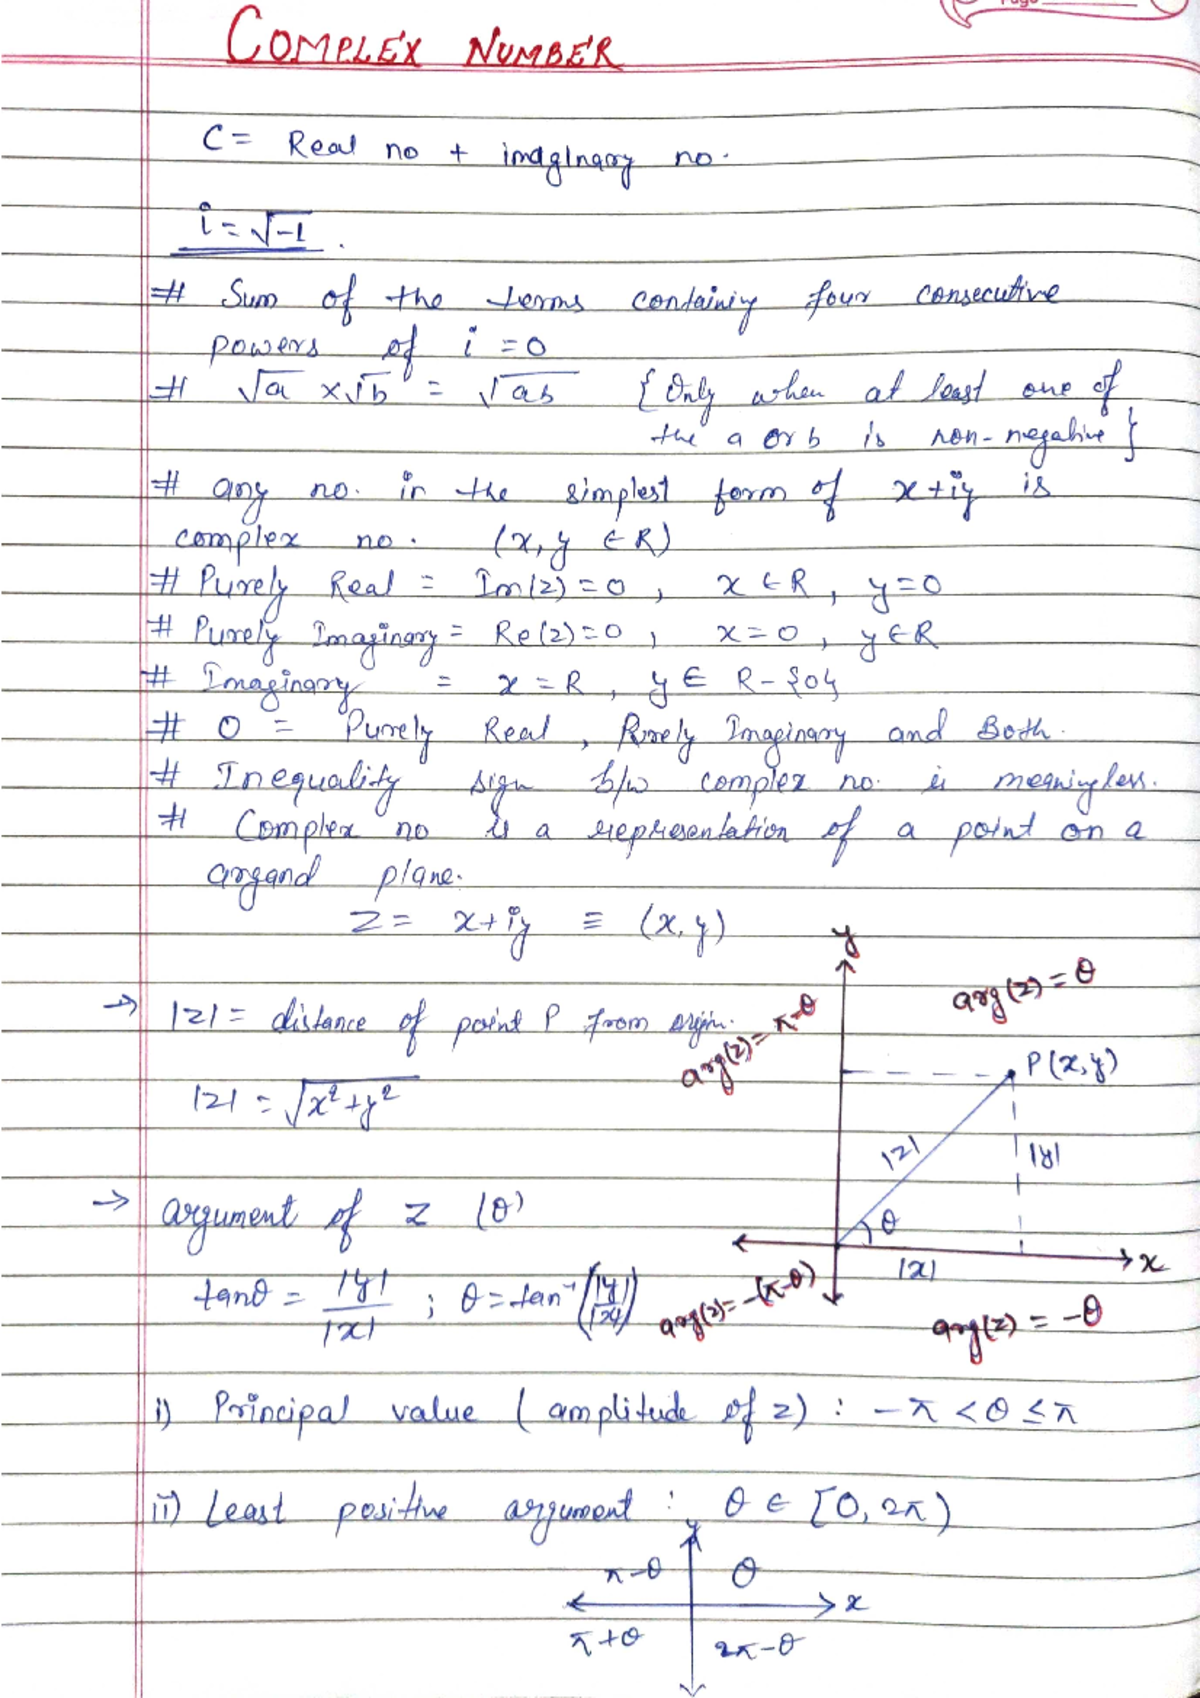 COMPLEX NUMBER
C = Real no + imagInary no.
i = √-1
# Sum of the terms containiy four consecutive
powers of i = 0
# √a × √b = √ab { Only when at least one of
the a or b is non-negative }
# any no. in the simplest form of x+iy is
complex no. (x, y ∈ R)
# Purely Real = Im(z) = 0, x ∈ R, y = 0
# Purely Imaginary = Re(z) = 0, x = 0, y ∈ R
# Imaginary = x = R, y ∈ R - {0}
# 0 = Purely Real, Purely Imaginary and Both.
# Inequality sign b/w complex no. is meaningless.
# Complex no is a representation of a point on a
argand plane.
z = x + iy ≡ (x, y)
y
arg(z) = θ
→ |z| = distance of point P from origin.
arg(z) = π-θ
P(x, y)
|z| = √x²+y²
|z|
|y|
→ argument of z (θ)
θ
|x|
x
tanθ = |y|/|x| ; θ = tan⁻¹(|y|/|x|)
arg(z) = -(π-θ)
arg(z) = -θ
i) Principal value ( amplitude of z) : -π < θ ≤ π
ii) Least positive argument : θ ∈ [0, 2π)
y
π-θ θ
x
π+θ 2π-θ